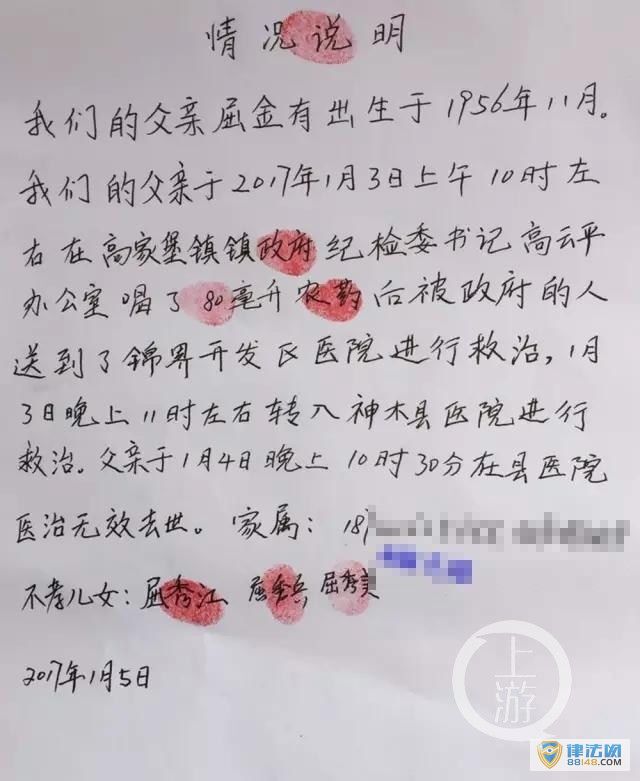 情况说明
我们的父亲屈金有出生于1956年11月。
我们的父亲于2017年1月3日上午10时左
右在高家堡镇镇政府纪检委书记高云平
办公室喝了80毫升农药后被政府的人
送到了锦界开发区医院进行救治,1月
3日晚上11时左右转入神木县医院进行
救治。父亲于1月4日晚上10时30分在县医院
医治无效去世。家属:18
不孝儿女:屈秀江 屈秀兵 屈秀美
2017年1月5日
上游
律法网
88148.com